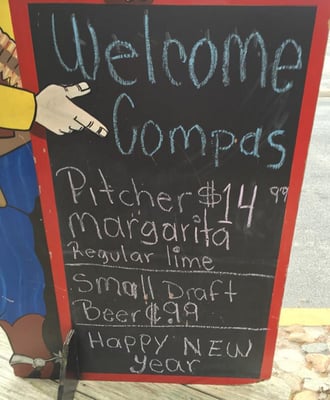 Welcome
Compas
Pitcher $14.99
margarita
Regular lime
Small Draft
Beer ¢99
HAPPY NEW
year